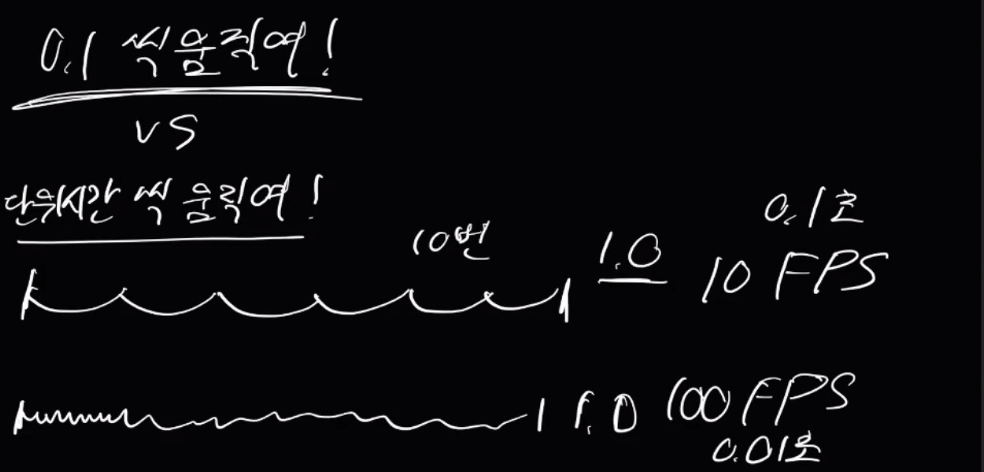 0.1 씩 움직여!
vs
단위시간 씩 움직여!
0.1초
10번 1.0 10 FPS
1.0 100 FPS
0.01초